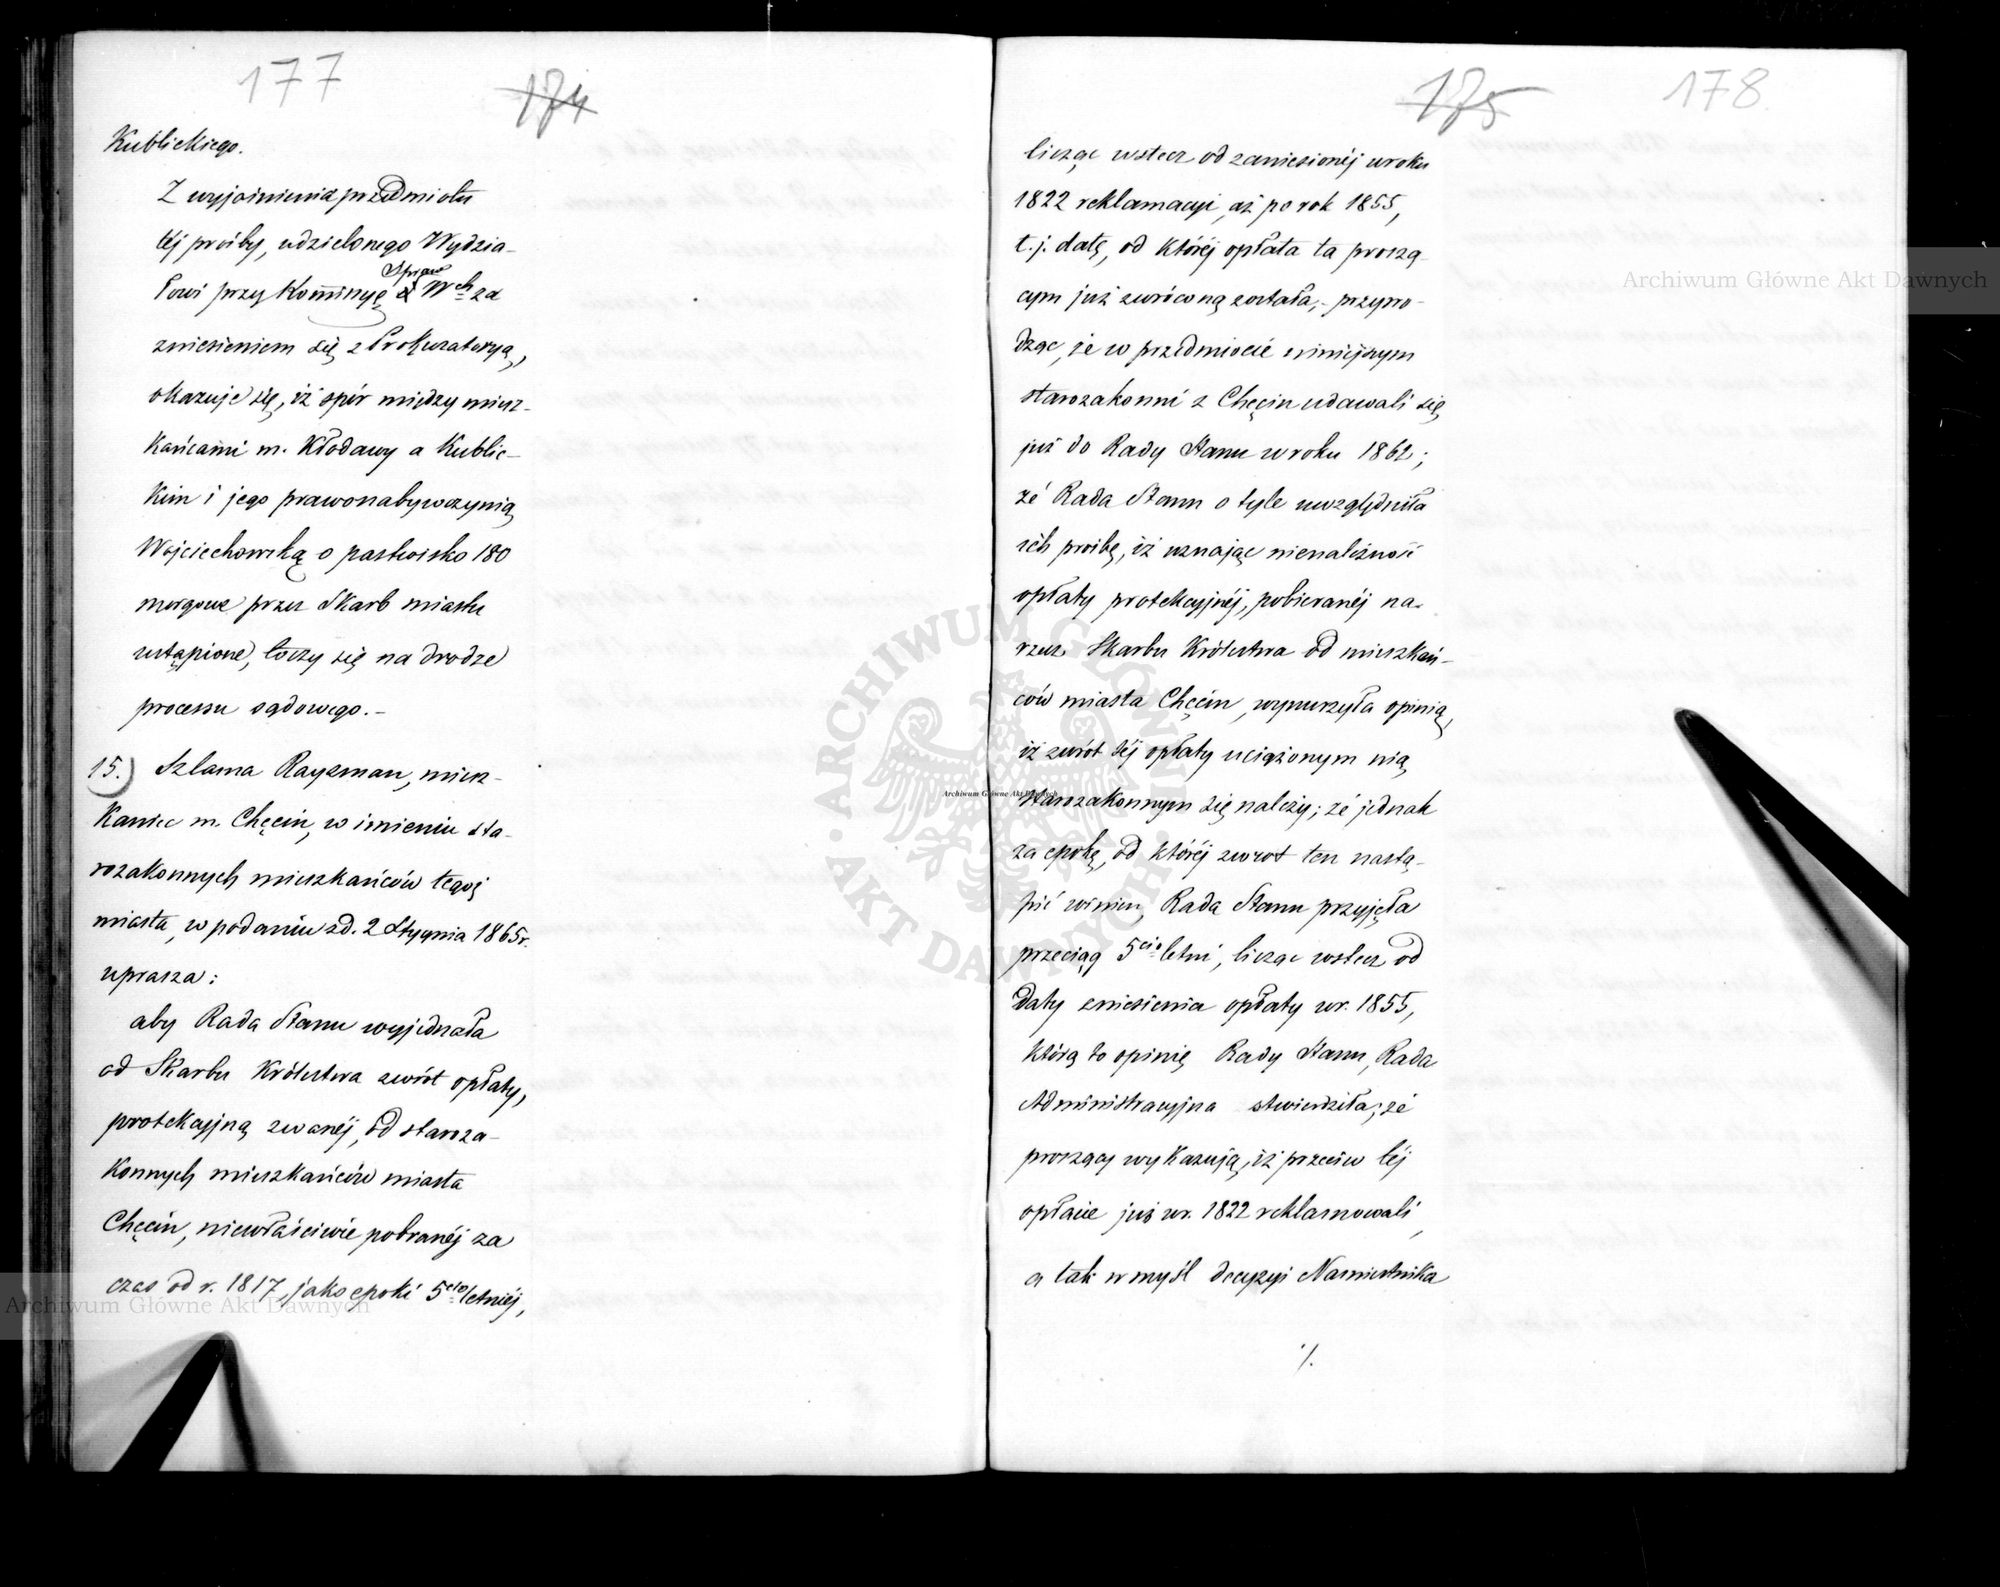 177
174
Kublickiego.
Z wyjaśnienia przedmiotu
téj prośby, udzielonego Wydzia-
łowi przy Kommissyę Spraw Wch za
zniesieniem się z Prokuratoryą,
okazuje się, iż spór między miesz-
kańcami m. Kłodawy a Kublic-
kim i jego prawonabywczynią
Wojciechowską o pastwisko 180
morgowe przez Skarb miastu
ustąpione, toczy się na drodze
processu sądowego.-
15.) Szlama Rayzman, miesz-
kaniec m. Chęcin, w imieniu sta-
rozakonnych mieszkańców tegoż
miasta, w podaniu z d. 2 Stycznia 1865 r.
uprasza:
aby Rada Stanu wyjednała
od Skarbu Królestwa zwrót opłaty,
protekcyjną zwanéj, od staroza-
konnych mieszkańców miasta
Chęcin, niewłaściwie pobranéj za
czas od r. 1817, jako epoki 5cio letniéj,
175
178
licząc wstecz od zaniesionéj w roku
1822 reklamacyi, aż po rok 1855,
t.j. datę, od któréj opłata ta proszą-
cym już zwróconą została,- przywo-
dząc, że w przedmiocie niniejszym
starozakonni z Chęcin udawali się
już do Rady Stanu w roku 1862;
że Rada Stanu o tyle uwzględniła
ich prośbę, iż uznając nienależność
opłaty protekcyjnéj, pobieranéj na
rzecz Skarbu Królestwa od mieszkań-
ców miasta Chęcin, wynurzyła opinią,
iż zwrót téj opłaty uciążonym nią
starozakonnym się należy; że jednak
za epokę, od któréj zwrot ten nastą-
pić winien, Rada Stanu przyjęła
przeciąg 5cio letni, licząc wstecz od
daty zniesienia opłaty w r. 1855,
którą to opinię Rady Stanu, Rada
Administracyjna stwierdziła; że
proszący wykazują, iż przeciw téj
opłacie już w r. 1822 reklamowali,
a tak w myśl decyzyi Namiestnika
./.
Archiwum Główne Akt Dawnych
Archiwum Główne Akt Dawnych
Archiwum Główne Akt Dawnych
ARCHIWUM GŁÓWNE AKT DAWNYCH